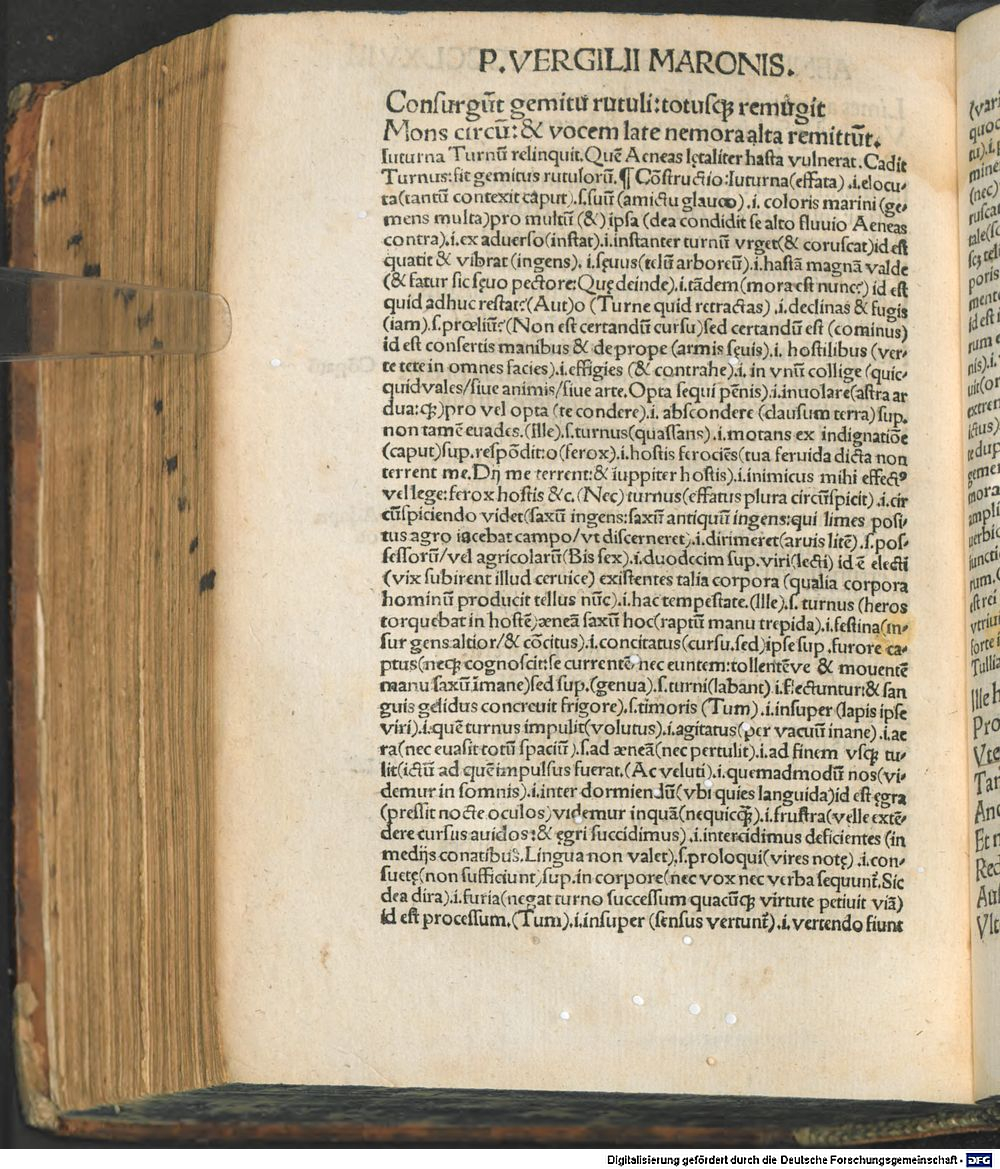 P. VERGILII MARONIS.
Consurgūt gemitu rutuli: totusq; remugit
Mons circū: & vocem late nemora alta remittūt.
Iuturna Turnū relinquit. Quē Aeneas lętaliter hasta vulnerat. Cadit
Turnus: fit gemitus rutulorū. ¶ Cōstructio: Iuturna (effata) .i. elocu-
ta (tantū contexit caput) .s. suū (amictu glauco) .i. coloris marini (ge-
mens multa) pro multū (&) ipsa (dea condidit se alto fluuio Aeneas
contra) .i. ex aduerso (instat) .i. instanter turnū vrget (& coruscat) id est
quatit & vibrat (ingens) .i. sęuus (telū arboreū) .i. hastā magnā valde
(& fatur sic sęuo pectore: Quę deinde) .i. tādem (mora est nunc?) id est
quid adhuc restat? (Aut) o (Turne quid retractas) .i. declinas & fugis
(iam) .s. prœliū? (Non est certandū cursu) sed certandū est (cominus)
id est consertis manibus & de prope (armis sęuis) .i. hostilibus (ver-
te tete in omnes facies) .i. effigies (& contrahe) .i. in vnū collige (quic-
quid vales/ siue animis/ siue arte. Opta sequi pēnis) .i. inuolare (astra ar
dua: q;) pro vel opta (te condere) .i. abscondere (clausum terra) sup.
non tamē euades. (Ille) .s. turnus (quassans) .i. motans ex indignatiōe
(caput) sup. respōdit: o (ferox) .i. hostis ferociēs (tua feruida dicta non
terrent me. Dij me terrent: & iuppiter hostis) .i. inimicus mihi effectꝰ
vel lege: ferox hostis &c. (Nec) turnus (effatus plura circūspicit) .i. cir
cūspiciendo videt (saxū ingens: saxū antiquū ingens: qui limes posi-
tus agro iacebat campo/ vt discerneret) .i. dirimeret (aruis litē) .s. pos-
sessorū/ vel agricolarū (Bis sex) .i. duodecim sup. viri (lecti) id ē electi
(vix subirent illud ceruice) existentes talia corpora (qualia corpora
hominū producit tellus nūc) .i. hac tempestate. (Ille) .s. turnus (heros
torquebat in hostē) æneā saxū hoc (raptū manu trepida) .i. festina (in-
sur gens altior/ & cōcitus) .i. concitatus (cursu. sed) ipse sup. furore ca-
ptus (neq; cognoscit: se currentē nec euntem: tollentēve & mouentē
manu saxū īmane) sed sup. (genua) .s. turni (labant) .i. flectuntur: & san
guis gelidus concreuit frigore) .s. timoris (Tum) .i. insuper (lapis ipse
viri) .i. quē turnus impulit (volutus) .i. agitatus (per vacuū inane) .i. ae
ra (nec euasit totū spaciū) .s. ad æneā (nec pertulit) .i. ad finem vsq; tu-
lit (ictū ad quē impulsus fuerat. (Ac veluti) .i. quemadmodū nos (vi-
demur in somnis) .i. inter dormiendū (vbi quies languida) id est ęgra
(pressit nocte oculos) videmur inquā (nequicq̄;) .i. frustra (velle extē-
dere cursus auidos: & ęgri succidimus) .i. intercidimus deficientes (in
medijs conatibus. Lingua non valet) .s. proloqui (vires notę) .i. con-
suetę (non sufficiunt) sup. in corpore (nec vox nec verba sequunt̄. Sic
dea dira) .i. furia (negat turno successum quacūq; virtute petiuit viā)
id est processum. (Tum) .i. insuper (sensus vertunt̄) .i. vertendo fiunt
(vari
quoc
tu) .i. p
mine
(nec)
ruscat
tale (sc
sc; tel
poris
mente
id est i
rum e
nis) .i.
uit (or
extren
ictus)
te dup
gemer
mora
ampli
uerbic
iuncti
rum. C
est rei
vtriu
forte i
Tullia
Ille h
Pro
Vte
Tan
Anc
Et n
Red
Aut
Vlt
Digitalisierung gefördert durch die Deutsche Forschungsgemeinschaft - DFG